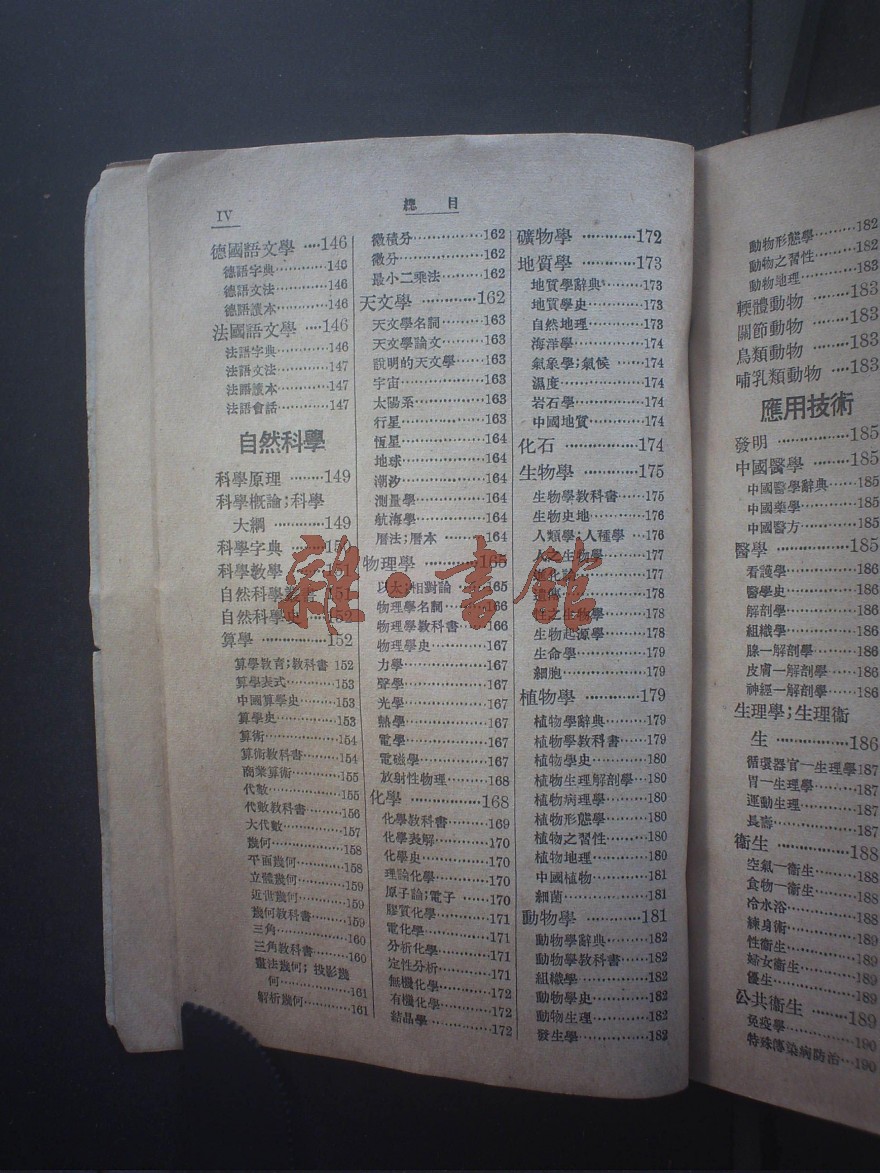 IV
總 目
德國語文學 ····146
德語字典············146
德語文法············146
德語讀本············146
法國語文學 ····146
法語字典············146
法語文法············147
法語讀本············147
法語會話············147
自然科學
科學原理 ·······149
科學概論;科學
大綱 ············149
科學字典
科學敎學 ·······151
自然科學
151
自然科學
算學 ···············152
算學敎育;敎科書 152
算學表式············153
中國算學史·········153
算學史···············153
算術··················154
算術敎科書·········154
商業算術············155
代數··················155
代數敎科書·········156
大代數···············157
幾何··················158
平面幾何············158
立體幾何············159
近世幾何············159
幾何敎科書·········159
三角··················160
三角敎科書·········160
畫法幾何; 投影幾
何·················161
解析幾何············161
微積分···············162
微分··················162
最小二乘法·········162
天文學 ············162
天文學名詞·········163
天文學論文·········163
說明的天文學······163
宇宙··················163
太陽系···············163
行星··················163
恆星··················164
地球··················164
潮汐··················164
測量學···············164
航海學···············164
曆法;曆本 ·········164
物理學 ············165
以太;相對論 165
物理學名詞·········166
物理學敎科書······166
物理學史············167
力學··················167
聲學··················167
光學··················167
熱學··················167
電學··················167
電磁學···············167
放射性物理·········168
化學 ···············168
化學敎科書·········169
化學表解············170
化學史···············170
理論化學············170
原子論;電子 ······170
膠質化學············171
電化學···············171
分析化學············171
定性分析············171
無機化學············172
有機化學············172
結晶學···············172
礦物學 ············172
地質學 ············173
地質學辭典·········173
地質學史············173
自然地理············173
海洋學···············174
氣象學;氣候 ······174
濕度··················174
岩石學···············174
中國地質············174
化石 ···············174
生物學 ············175
生物學敎科書······175
生物史地············176
人類學;人種學 ···176
人之生物學·········177
177
遺傳··················178
性之生物學·········178
生物起源學·········178
生命學···············178
細胞··················178
植物學 ············179
植物學辭典·········179
植物學敎科書······179
植物學史············180
植物生理解剖學···180
植物病理學·········180
植物形態學·········180
植物之習性·········180
植物地理············180
中國植物············181
細菌··················181
動物學 ············181
動物學辭典·········182
動物學敎科書······182
組織學···············182
動物學史············182
動物生理············182
發生學···············182
動物形態學·········182
動物之習性·········182
動物地理············183
輭體動物 ·······183
關節動物 ·······183
鳥類動物 ·······183
哺乳類動物 ····183
應用技術
發明 ···············185
中國醫學 ·······185
中國醫學辭典······185
中國藥學············185
中國醫方············185
醫學 ···············185
看護學···············186
醫學史···············186
解剖學···············186
組織學···············186
腺—解剖學·········186
皮膚—解剖學······186
神經—解剖學······186
生理學;生理衞
生 ···············186
循環器官—生理學187
胃—生理學·········187
運動生理············187
長壽··················187
衞生 ···············188
空氣—衞生·········188
食物—衞生·········188
冷水浴···············188
練身術···············189
性衞生···············189
婦女衞生············189
優生··················189
公共衞生 ·······189
免疫學···············190
特殊傳染病防治···190
雜·書館